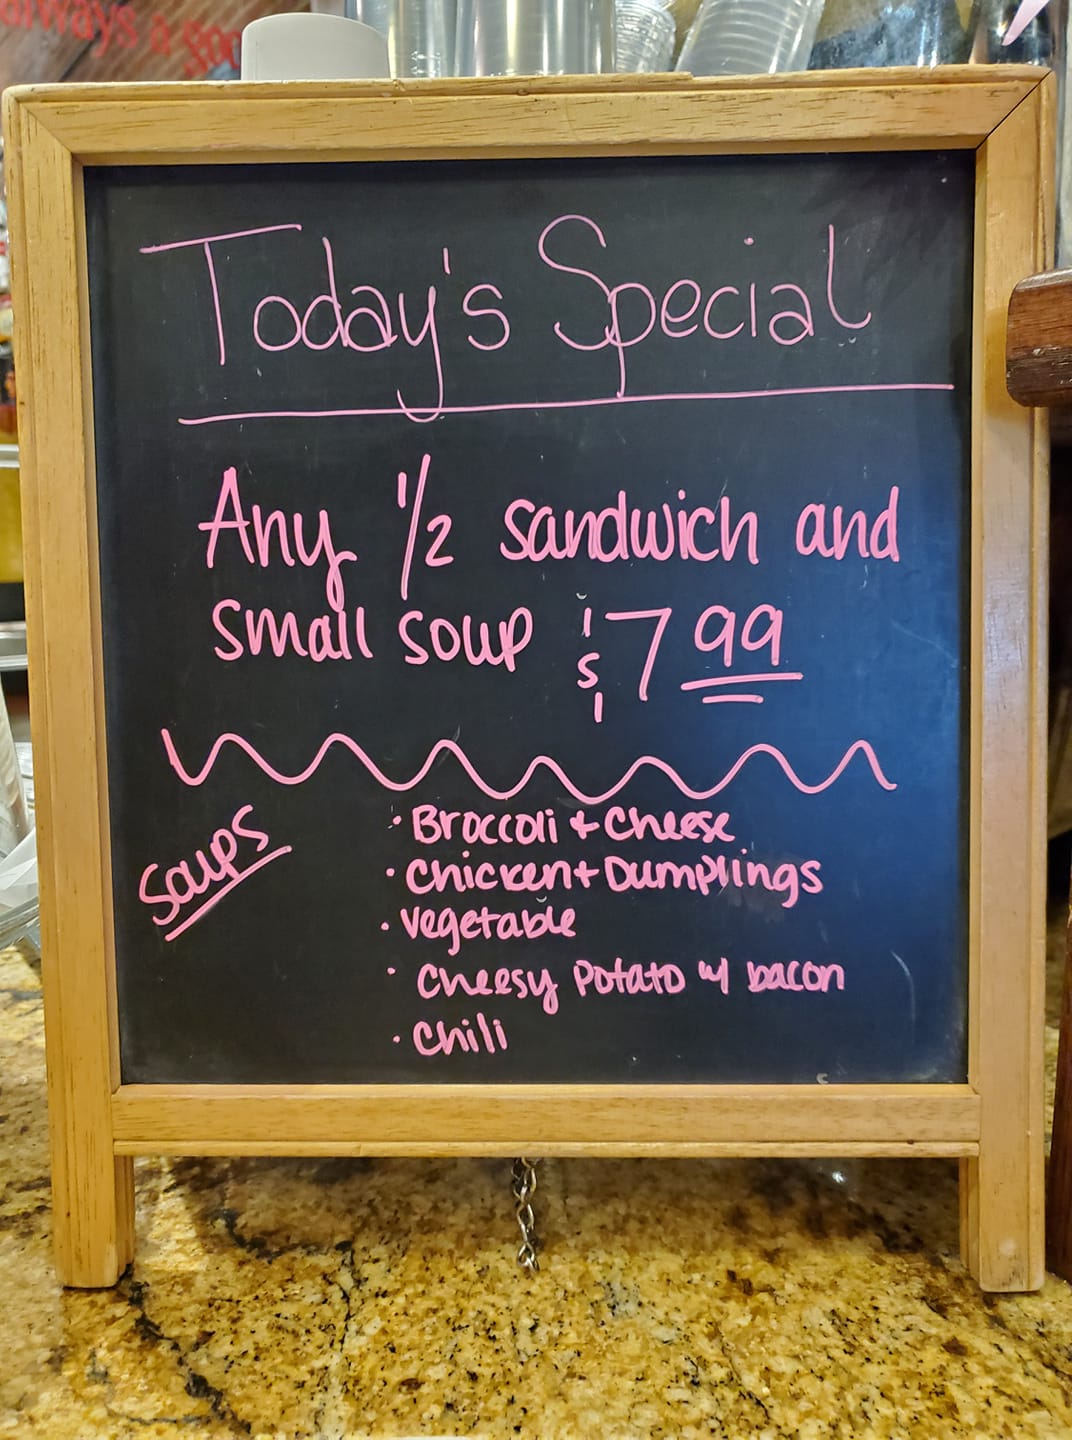 always a goo
Today's Special
Any 1/2 sandwich and
small soup $7 99
Soups
· Broccoli + Cheese
· Chicken + Dumplings
· Vegetable
· Cheesy Potato w/ bacon
· Chili